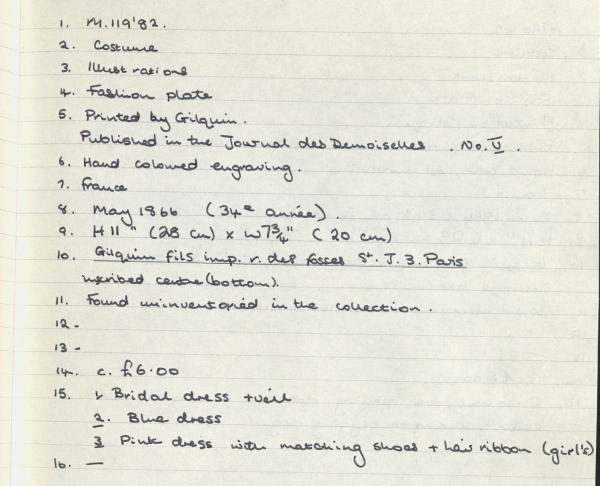 1. M.119'82.
2. Costume
3. Illustrations
4. Fashion plate
5. Printed by Gilquin.
Published in the Journal des Demoiselles . No. V .
6. Hand coloured engraving.
7. France
8. May 1866 (34e année).
9. H 11" (28 cm) x W 7¾" (20 cm)
10. Gilquin fils imp. r. des fosses St. J. 3. Paris
inscribed centre (bottom).
11. Found uninventoried in the collection.
12 -
13 -
14. c. £6.00
15. 1. Bridal dress + veil
2. Blue dress
3 Pink dress with matching shoes + hair ribbon (girl's)
16. —